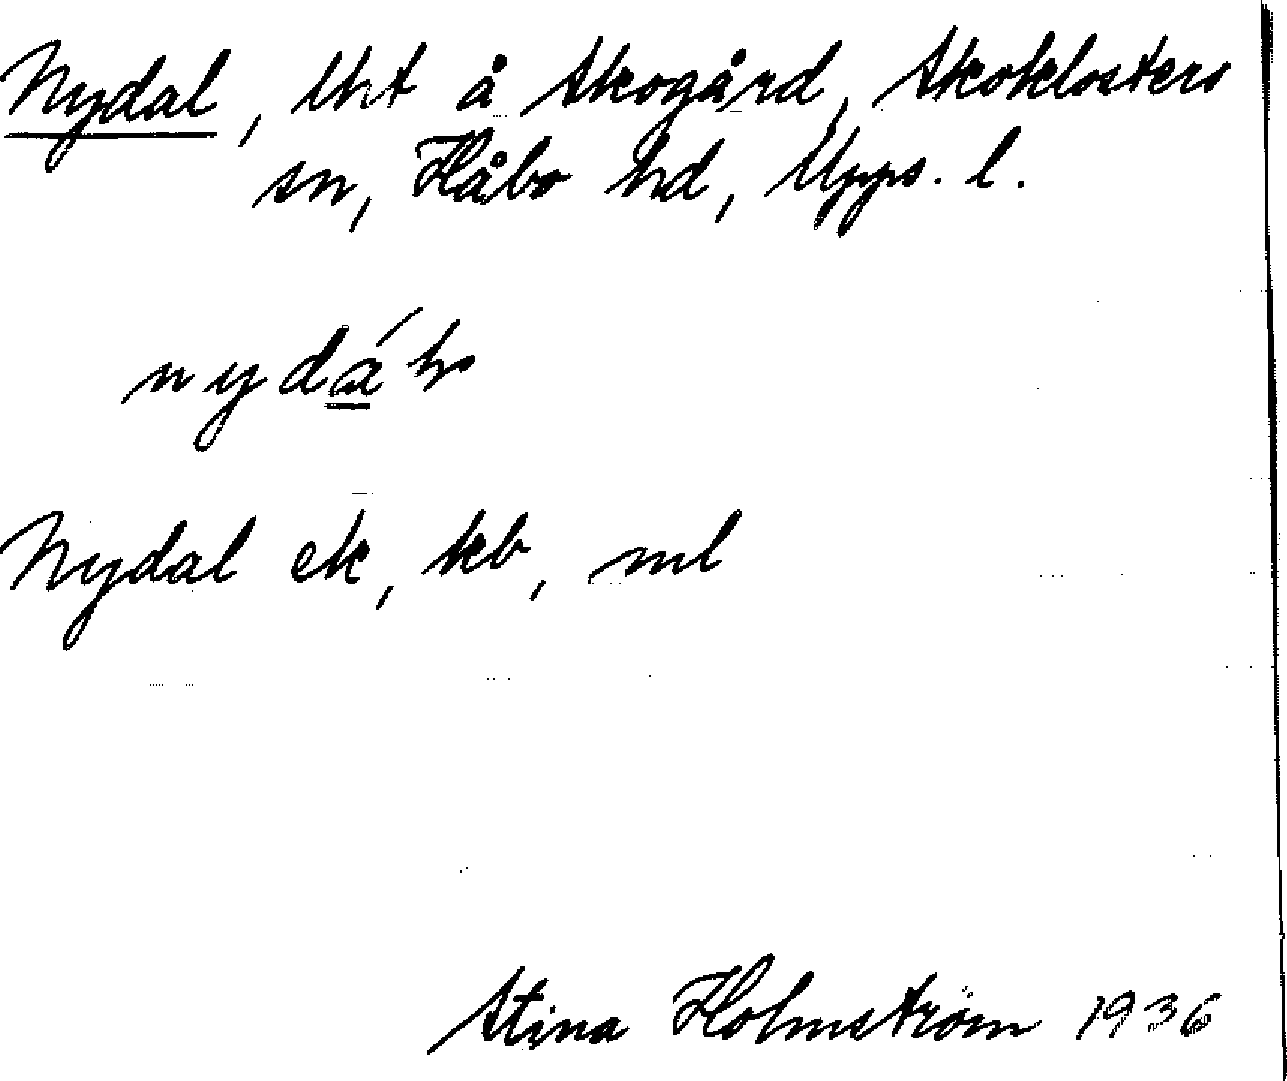 Nydal, lht å Skogård, Skoklosters
sn, Håbo hd, Upps. l.
Nydal ek, kb, ml
Stina Holmström 1936